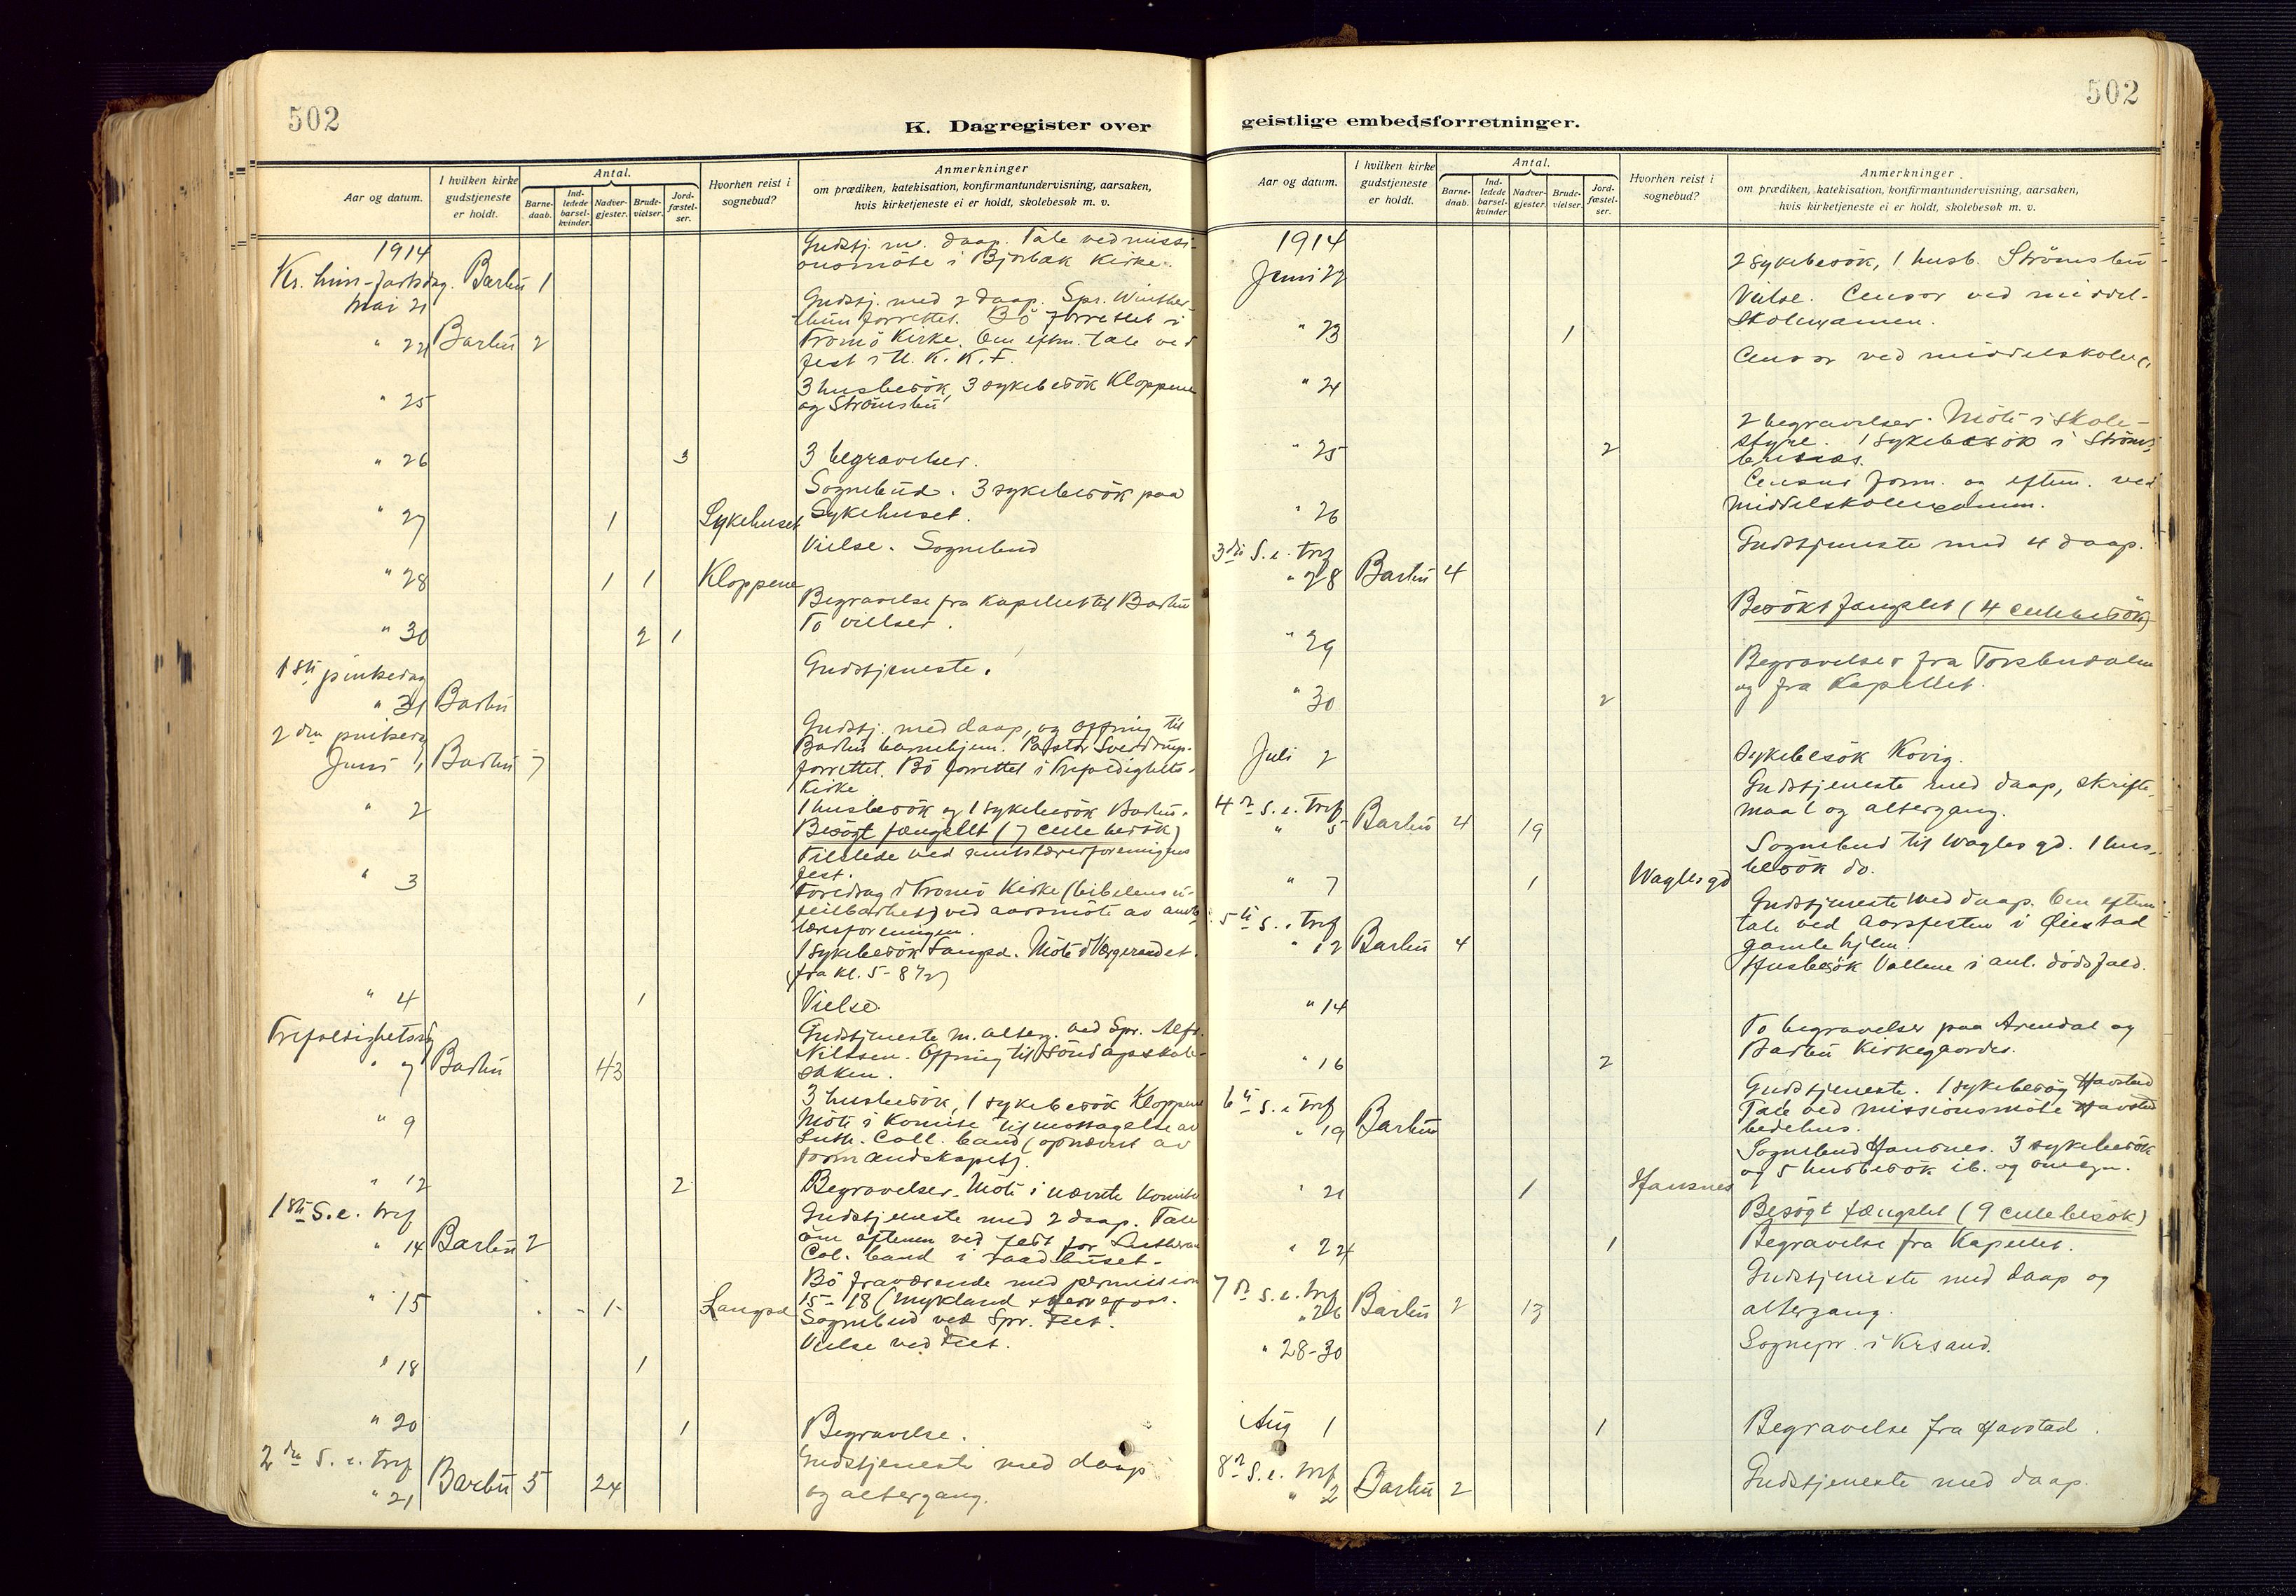 502
K. Dagregister over
Aar og datum.
I hvilken kirke gudstjeneste er holdt.
Antal.
Barne-daab.
Ind-ledede barsel-kvinder.
Nadver-gjester.
Brude-vielser.
Jord-fæstel-ser.
Hvorhen reist i sognebud?
Anmerkninger
om prædiken, katekisation, konfirmantundervisning, aarsaken,
hvis kirketjeneste ei er holdt, skolebesøk m. v.
1914
Gudstj. m. daap. Tale ved missi-
Kr. him-fartsdag. Barbu 1 onsmöte i Bjorbæk Kirke.
Mai 21
Gudstj. med 2 daap. Spr. Winther
forrettet. Bö forrettet i
" 22 Barbu 2 Tromö Kirke. Om eftm. tale ved
fest i U. K. K. F.
" 25 3 husbesök, 3 sykebesök Kloppene
og Strömsbu
" 26 3 3 begravelser.
Sognebud. 3 sykebesök paa
" 27 1 Sykehuset Sykehuset.
Vielse. Sognebud
" 28 1 1 Kloppene
Begravelse fra Kapellet til Barbu
" 30 2 1 To vielser.
1ste pinsedag Gudstjeneste.
" 31 Barbu
2den pinsedag Gudstj. med daap, og offring til
Barbu barnehjem. Pastor Sverdrup
Juni 1 Barbu 7 forrettet. Bö forrettet i Trefoldigheds-
Kirke
" 2 1 husbesök og 1 sykebesök Barbu.
Besögt fængslet (7 cellebesök)
Tilstede ved amtslærerforeningens
" 3 fest.
Foredrag i Tromö Kirke (bibelens u-
feilbarhet) ved aarsmöte av amts
lærerforeningen.
1 sykebesök Langsd. Möte i Vergeraadet.
(fra kl. 5-8½)
" 4 1 Vielse.
Trefoldighetssd Gudstjeneste m. alterg. ved Spr. Alfr.
" 7 Barbu 43 Nilssen. Offring til Söndagsskole-
saken.
3 husbesök, 1 sykebesök Kloppene
" 9 Möte i Komite til mottagelse av
Luth. Coll. band (opnævnt av
formandskapet).
" 12 2 Begravelser. Möte i nævnte Komite
1ste S. e. tref Gudstjeneste med 2 daap. Tale
" 14 Barbu 2 om eftmm ved fest for Lutheran
Col. band i raadhuset.
Bö fraværende med permission
" 15 1 Langsd 15-18 (Mykland + Herrefoss.
Sognebud ved Spr. Fiet.
Vielse ved Fiet.
" 18 1
" 20 1 Begravelse.
2den S. e. tref Gudstjeneste med daap
" 21 Barbu 5 24 og altergang.
502
geistlige embedsforretninger.
Aar og datum.
I hvilken kirke gudstjeneste er holdt.
Antal.
Barne-daab.
Ind-ledede barsel-kvinder
Nadver-gjester.
Brude-vielser.
Jord-fæstel-ser.
Hvorhen reist i sognebud?
Anmerkninger
om prædiken, katekisation, konfirmantundervisning, aarsaken,
hvis kirketjeneste ei er holdt, skolebesøk m. v.
1914
Juni 22 2 sykebesök, 1 husb. Strömsbu
Vielse. Censor ved middel-
" 23 1 skolexamen.
" 24 Censor ved middelskolex.
2 begravelser. Möte i skole-
" 25 2 styre. 1 sykebesök i Ströms-
Censur form. og eftm. ved
" 26 middelskoleexamen.
3die S. e. tref Gudstjeneste med 4 daap.
" 28 Barbu 4
Besökt fængslet (4 cellebesök)
" 29
Begravelser fra Torsbudalen
" 30 2 og fra Kapellet.
Juli 2 Sykebesök Kovig.
Gudstjeneste med daap, skrifte-
4de S. e. tref maal og altergang.
" 5 Barbu 4 19
Sognebud til Wagles gd. 1 hus-
" 7 1 Wagles gd besök do.
Gudstjeneste med daap. Om eftm
5te S. e. tref tale ved aarsfesten i Øiestad
" 12 Barbu 4 gamle hjem.
" 14 Husbesök Vallene i anl. dödsfald.
To begravelser paa Arendal og
" 16 2 Barbu Kirkegaarder.
Gudstjeneste. 1 sykebesög Havstad
6te S. e. tref Tale ved missionsmöte Havstad
" 19 Barbu bedehus.
Sognebud Hansnes. 3 sykebesök
" 21 1 Hansnes og 5 husbesök ib. og omegn.
Besögt fængslet (9 cellebesök)
" 22 1 Begravelse fra Kapellet.
7de S. e. tref Gudstjeneste med daap og
" 26 Barbu 2 13 altergang.
" 28-30 Sognepr. i Krsand.
Aug 1 1 Begravelse fra Havstad.
8de S. e. tref
" 2 Barbu 2 Gudstjeneste med daap.